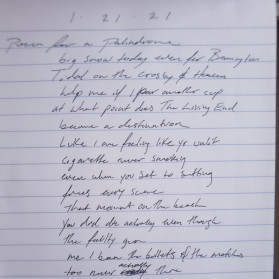 1 · 21 · 21
Poem for a Palindrome
big snow today even for Bennington
T. ded on the Crosby & Heaven
help me if I pour another cup
at what point does The Lissing End
become a destination
Luke I am feeling like yr unlit
cigarette never smoking
even when you set to
fires every scene
that moment on the beach
You did die actually even though
the fully gun
me I learn the bullets of the matches
too never actually there